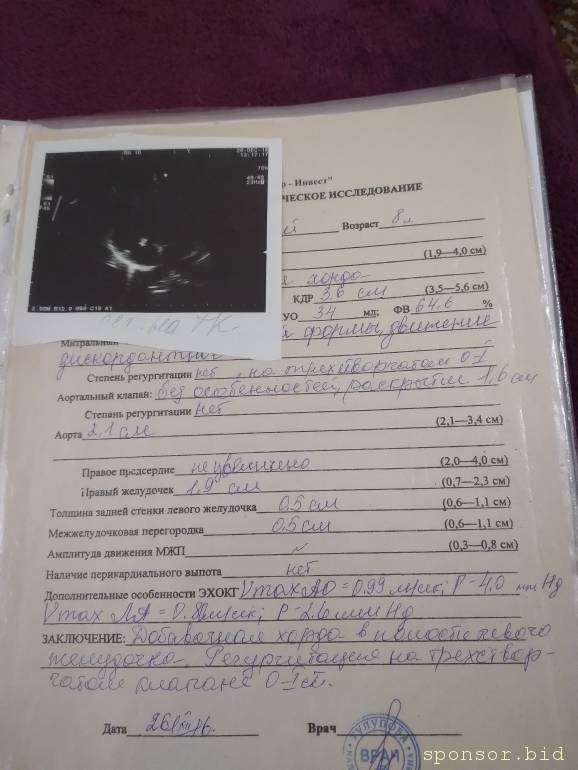 26-DEC-16
12:17:17
р - Инвест"
ЧЕСКОЕ ИССЛЕДОВАНИЕ
ий Возраст 8 л
(1,9–4,0 см)
хорда
КДР 3,6 см (3,5–5,6 см)
УО 34 мл; ФВ 64,6 %
на ТК.
Митральный формы, движение
дискордантное
Степень регургитации нет, на трехстворчатом 0-I
Аортальный клапан: без особенностей, раскрытие 1,6 см
Степень регургитации нет
Аорта 2,1 см (2,1–3,4 см)
Правое предсердие не увеличено (2,0–4,0 см)
Правый желудочек 1,9 см (0,7–2,3 см)
Толщина задней стенки левого желудочка 0,5 см (0,6–1,1 см)
Межжелудочковая перегородка 0,5 см (0,6–1,1 см)
Амплитуда движения МЖП N (0,3–0,8 см)
Наличие перикардиального выпота нет
Дополнительные особенности ЭХОКГ Vmax АО = 0,99 м/сек; P - 4,0 mm Hg
Vmax ЛА = 0, м/сек; P - 2,6 mm Hg
ЗАКЛЮЧЕНИЕ: Добавочная хорда в полости левого
желудочка. Регургитация на трехствор-
чатом клапане 0-I ст.
Дата 26/XII/16. Врач
ТУЛУПОВА
ВРАЧ
sponsor.bid